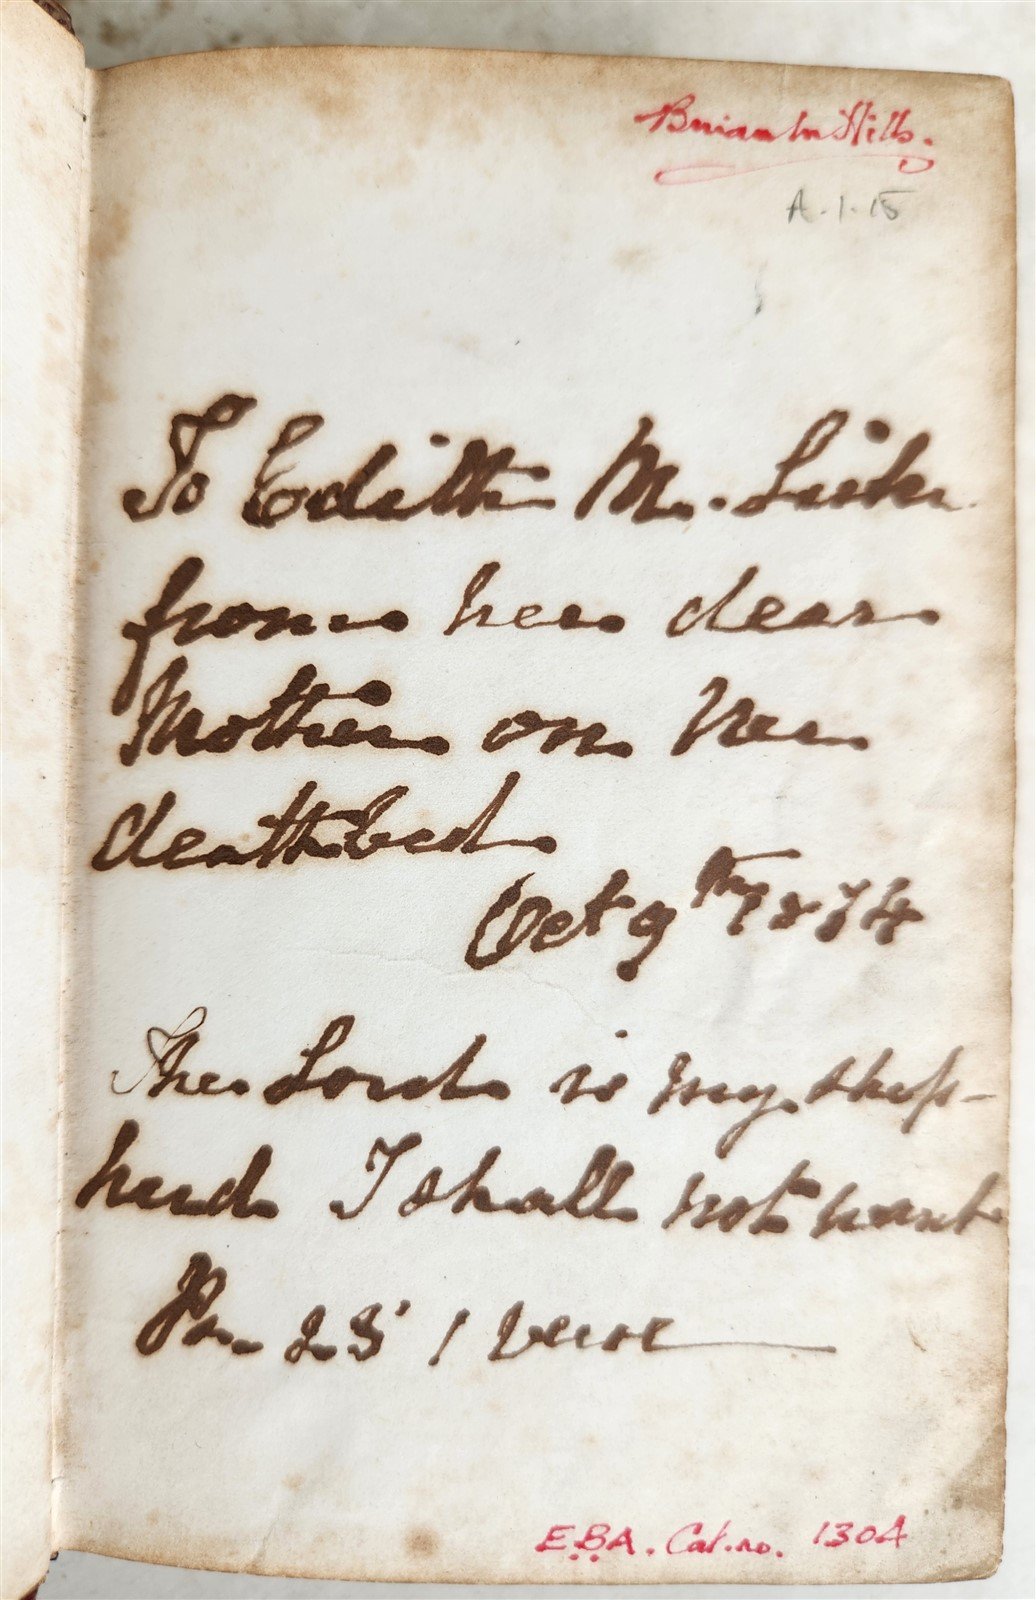 Brian W Hills.
A.1.15
To Edith M. Lister
from her dear
Mother on her
deathbed
Oct 9th 1874
The Lord is my shep-
herd I shall not want
Ps. 23 1 verse
E.B.A. Cat. no. 1304